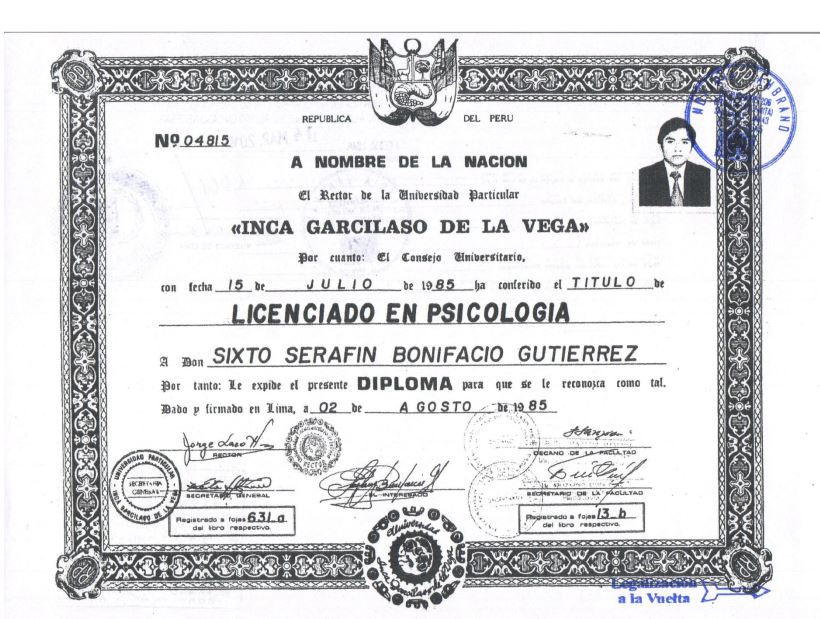 REPUBLICA DEL PERU
Nº 04815
A NOMBRE DE LA NACION
El Rector de la Universidad Particular
«INCA GARCILASO DE LA VEGA»
Por cuanto: El Consejo Universitario,
con fecha 15 de JULIO de 1985 ha conferido el TITULO de
LICENCIADO EN PSICOLOGIA
A Don SIXTO SERAFIN BONIFACIO GUTIERREZ
Por tanto: Le expide el presente DIPLOMA para que se le reconozca como tal.
Dado y firmado en Lima, a 02 de AGOSTO de 1985
RECTOR
DECANO DE LA FACULTAD
UNIVERSIDAD PARTICULAR
INCA GARCILASO DE LA VEGA
SECRETARIA
GENERAL
SECRETARIO GENERAL
EL INTERESADO
SECRETARIO DE LA FACULTAD
Registrado a fojas 631 a
del libro respectivo.
Registrado a fojas 13 b
del libro respectivo.
Universidad
Inca Garcilaso de la Vega
Legalización
a la Vuelta